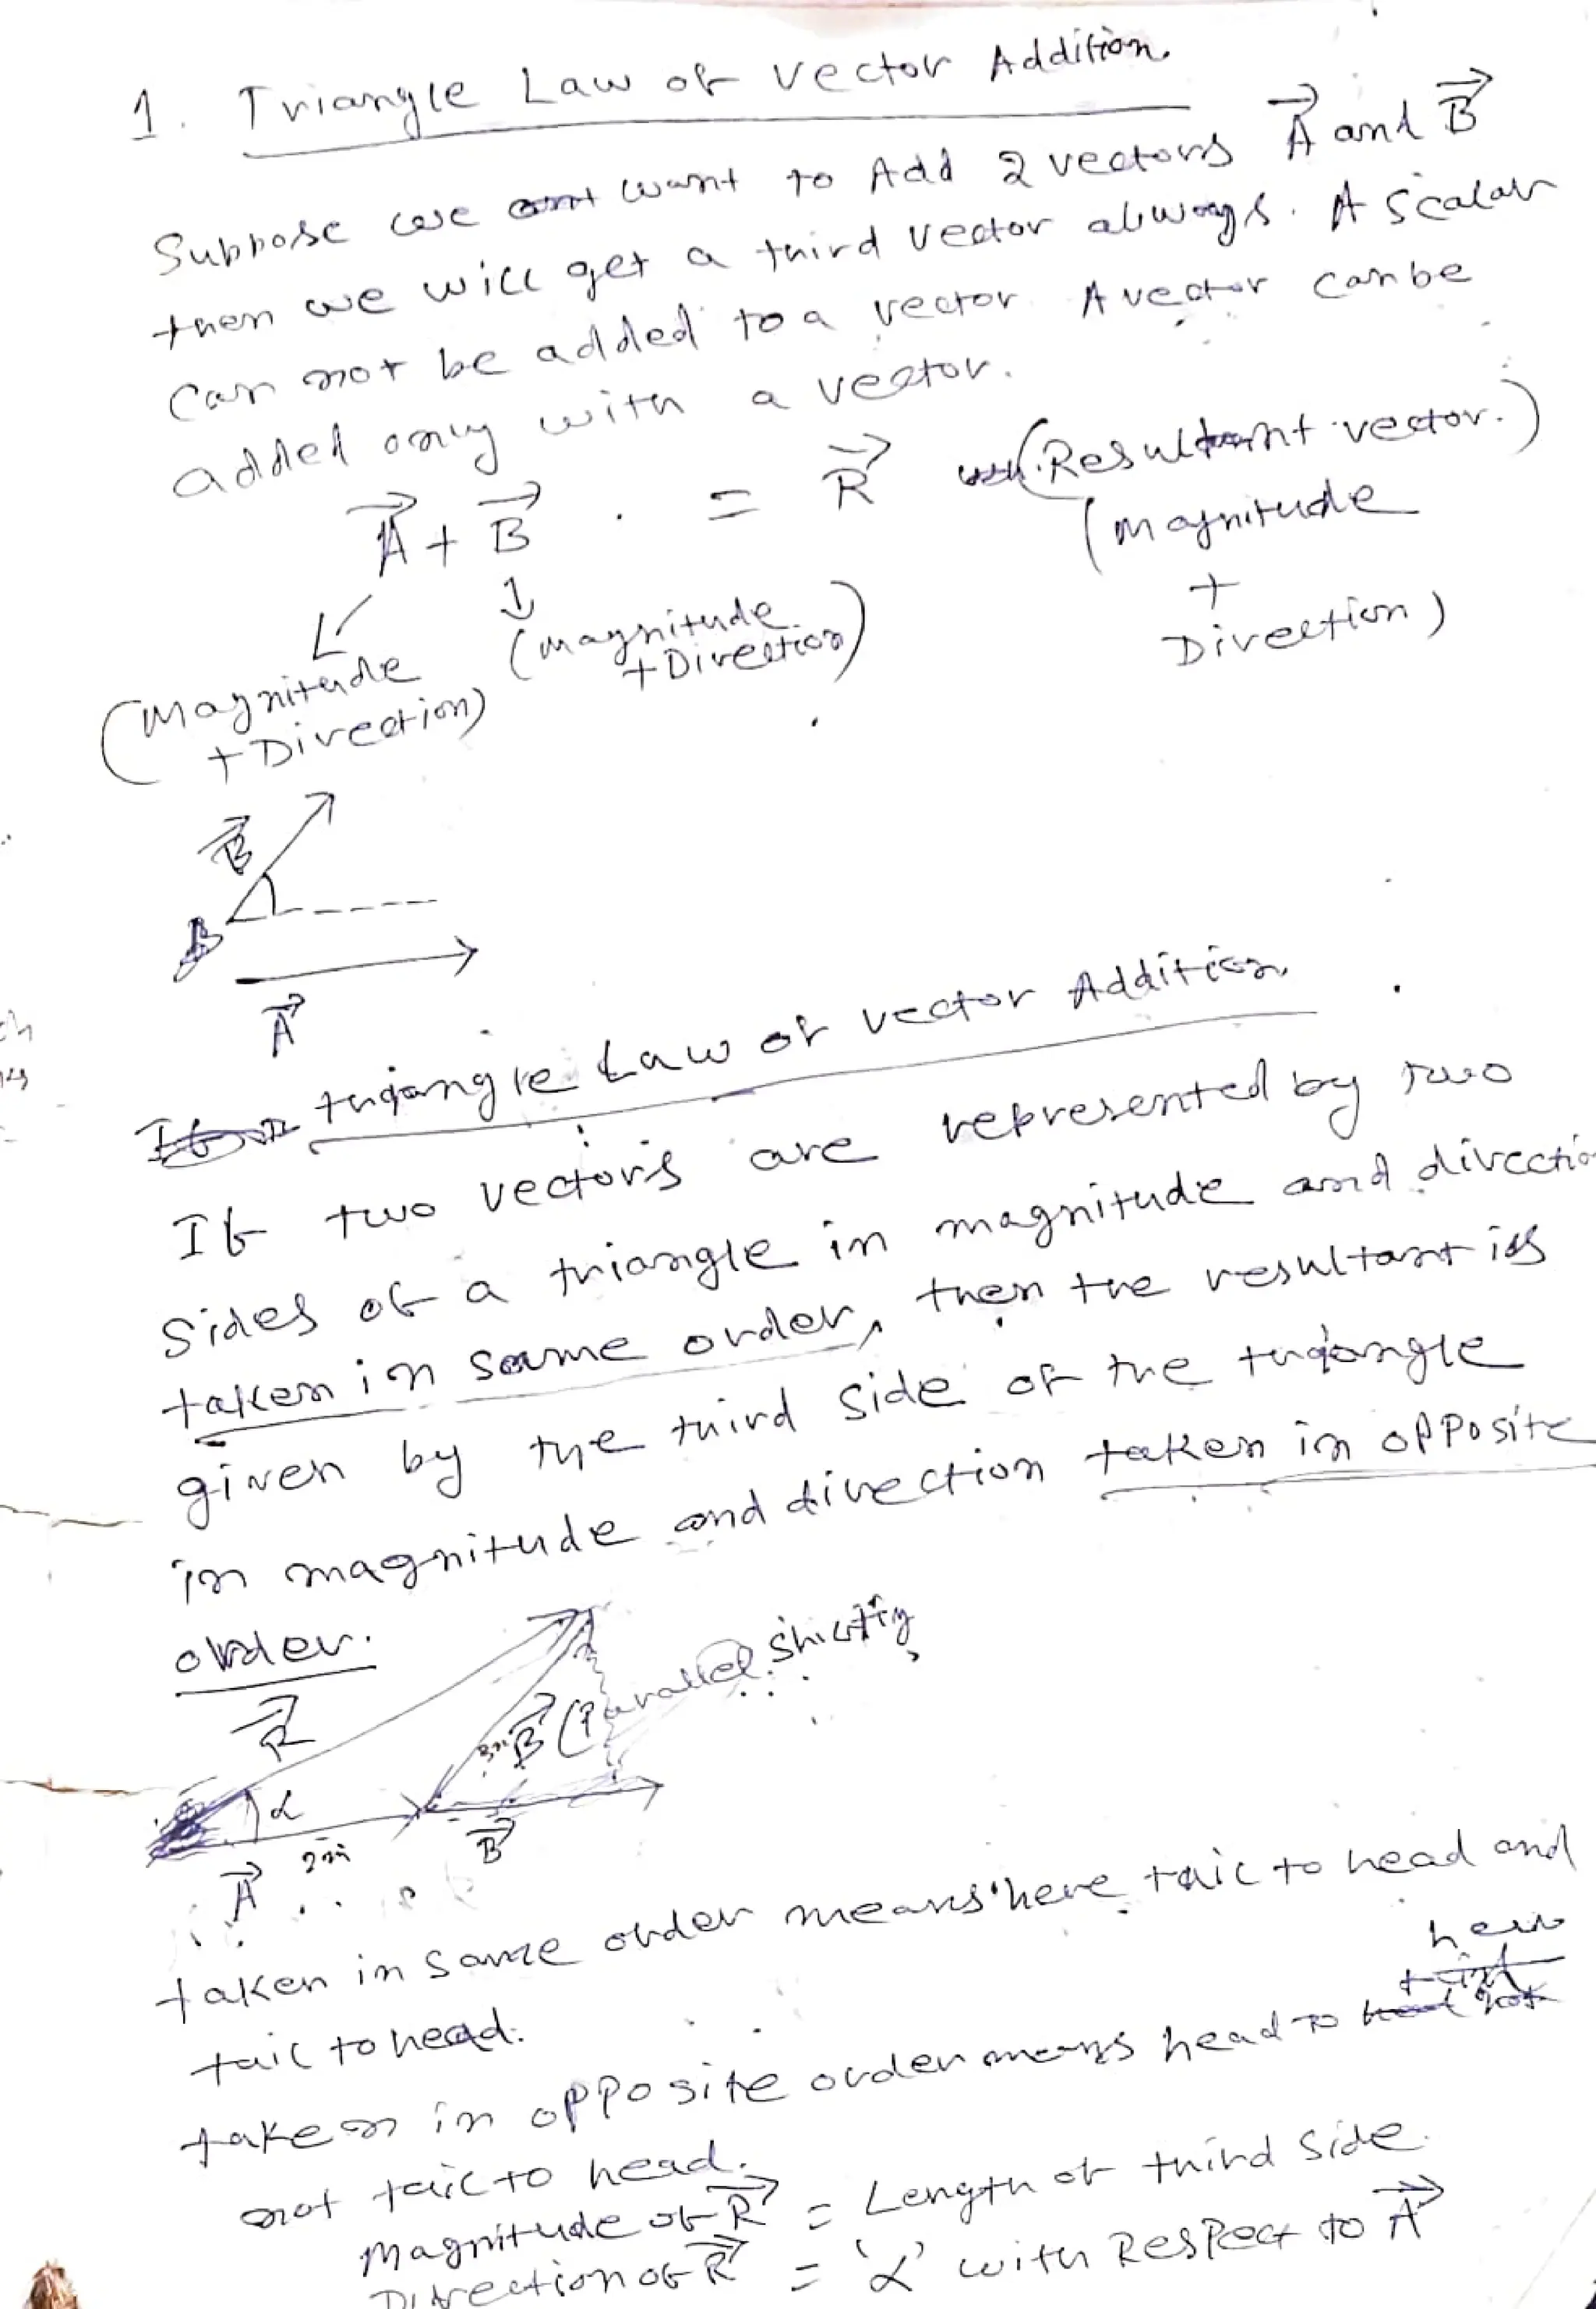 1. Triangle Law of vector Addition.
Suppose we want to Add 2 vectors A⃗ and B⃗
then we will get a third vector always. A scalar
can not be added to a vector A vector can be
added only with a vector.
A⃗ + B⃗ = R⃗ (Resultant vector.)
(Magnitude + Direction) (magnitude + Direction) (magnitude + Direction)
B⃗
A⃗
triangle Law of vector Addition.
If two vectors are represented by two
sides of a triangle in magnitude and directio
taken in same order, then the resultant is
given by the third side of the triangle
in magnitude and direction taken in opposite
order.
R⃗
B⃗ (Parallel shifting
α
A⃗ 2m B⃗
taken in same order means here tail to head and
tail to head.
taken in opposite order means head to
not tail to head.
Magnitude of R⃗ = Length of third side.
Direction of R⃗ = 'α' with Respect to A⃗